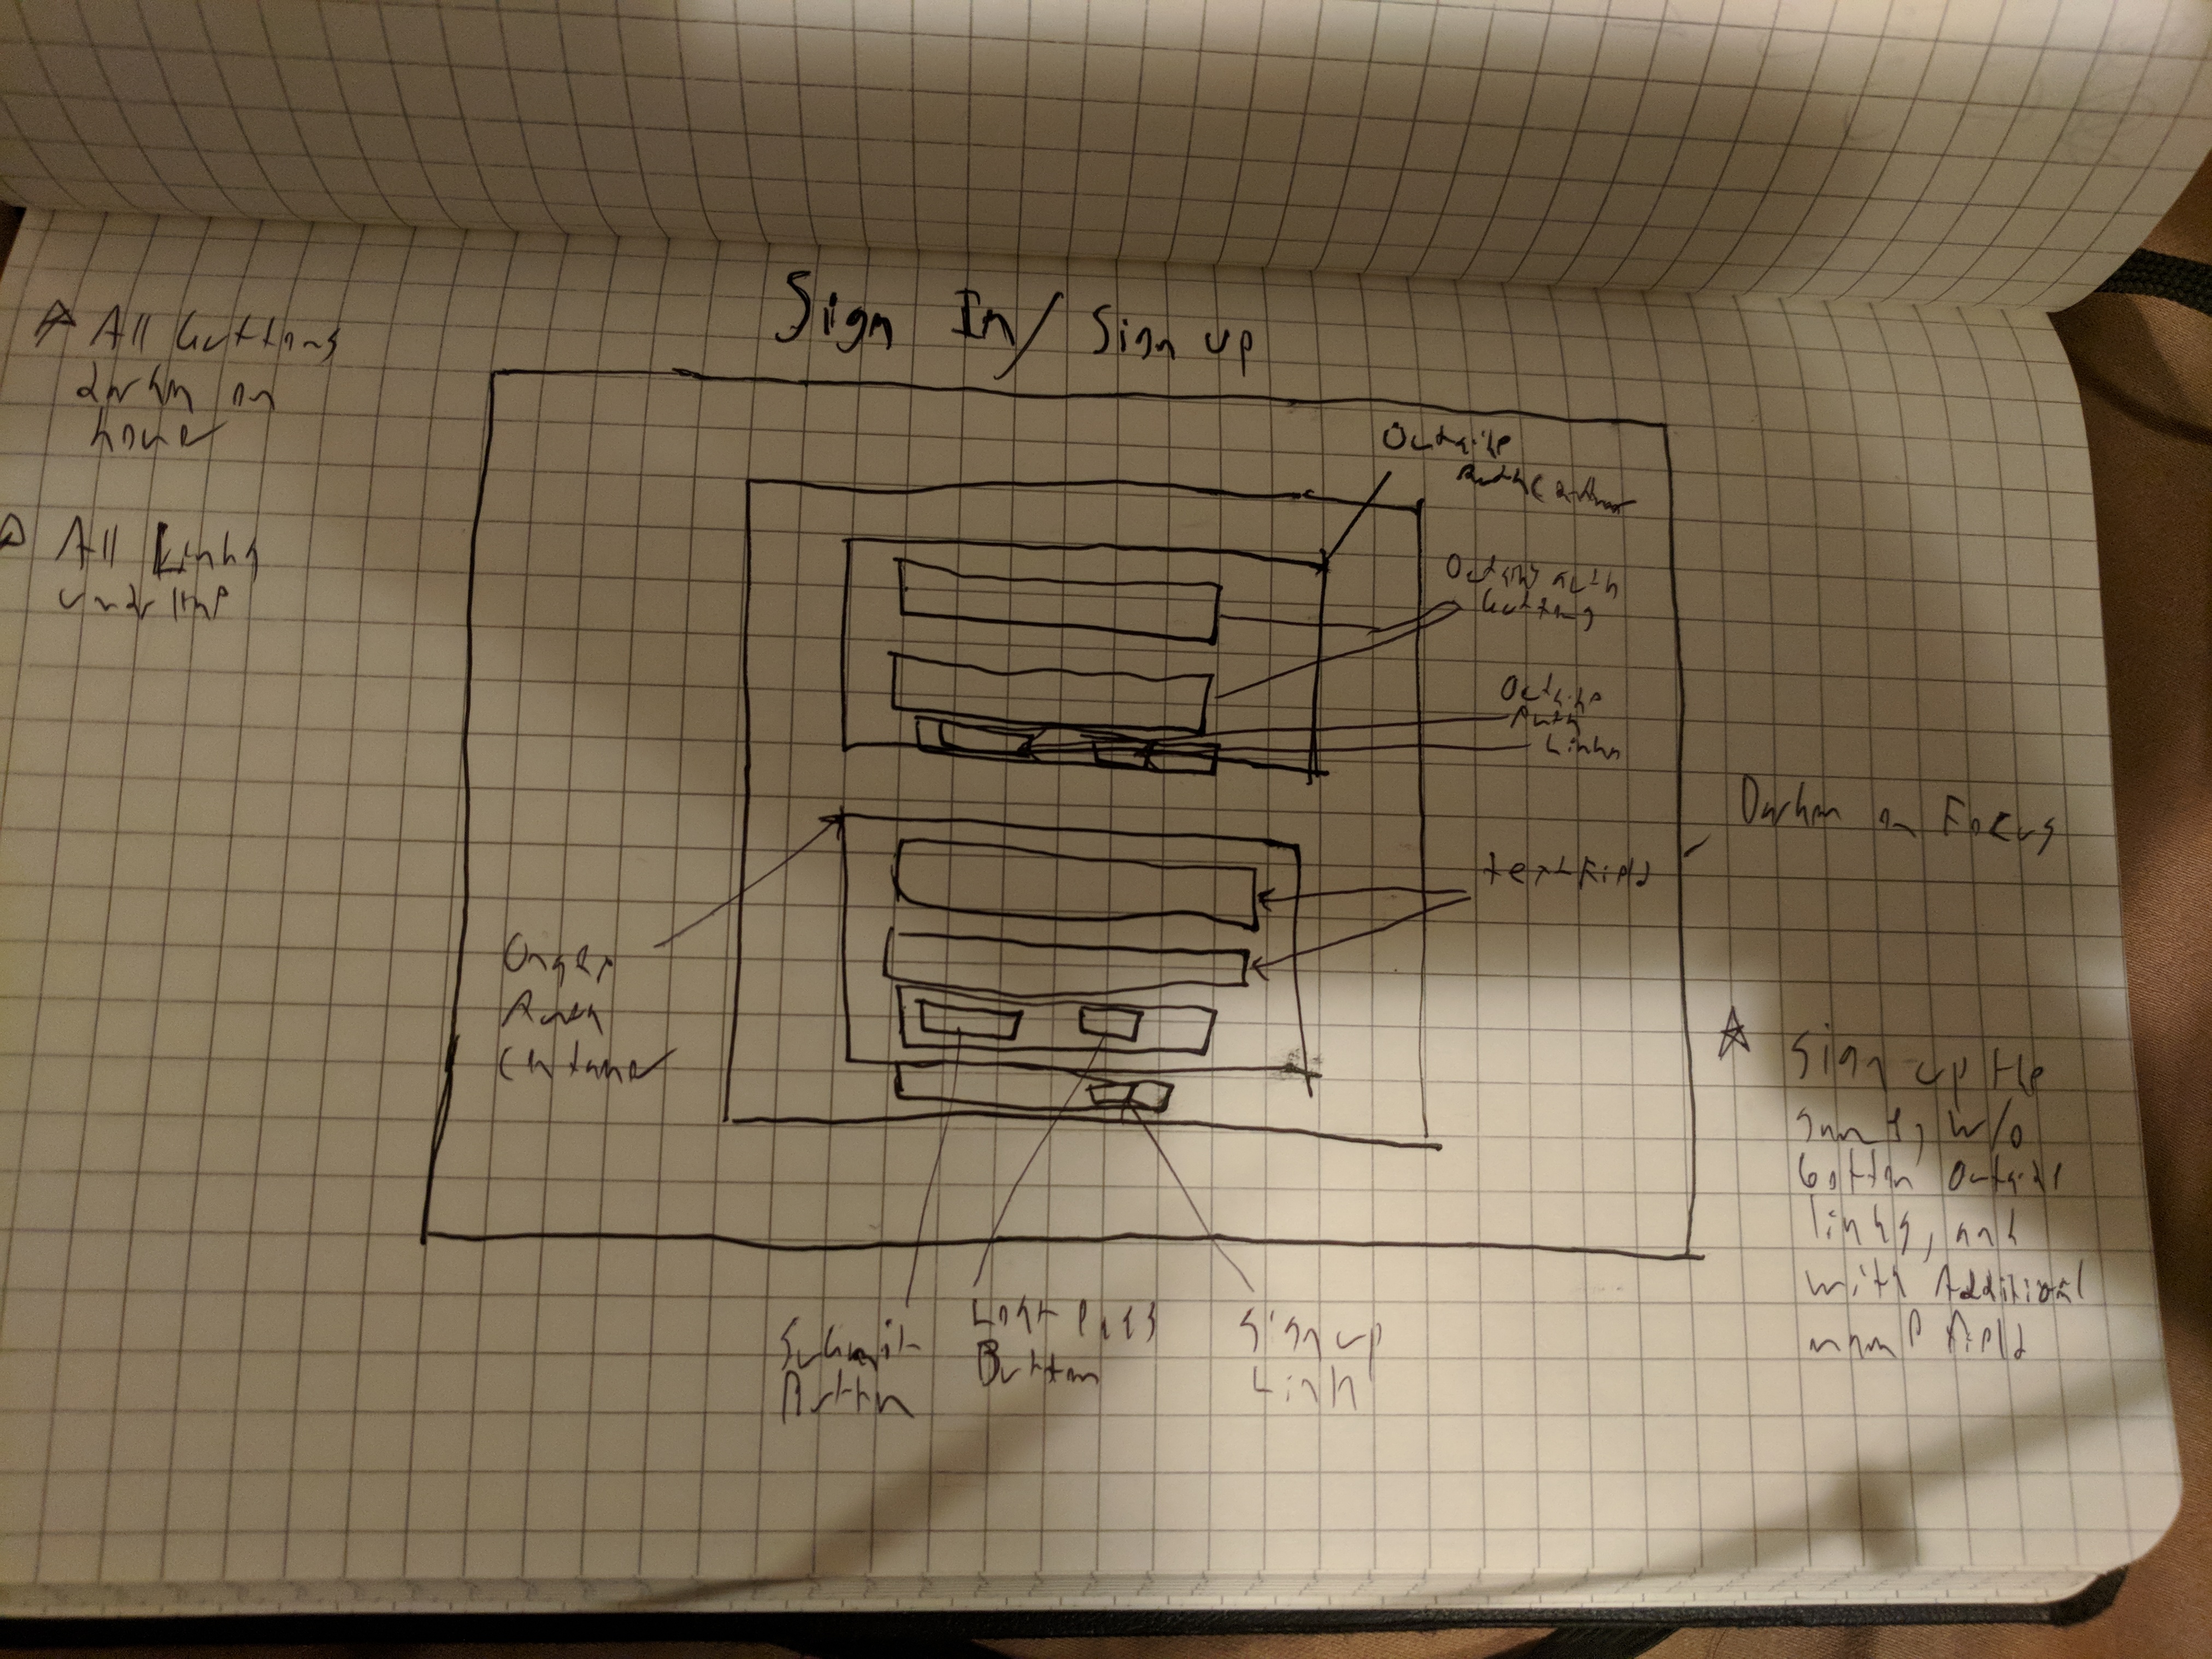 Sign In / Sign up
All buttons
darken on
hover
All Links
underline
Outside
Outside auth
buttons
Outside
Auth
Links
Darken on Focus
text Field
Auth
Container
Sign up the
same, w/o
bottom outside
links, and
with Additional
name field
Submit
Button
Lost Pass
Button
Sign up
Link